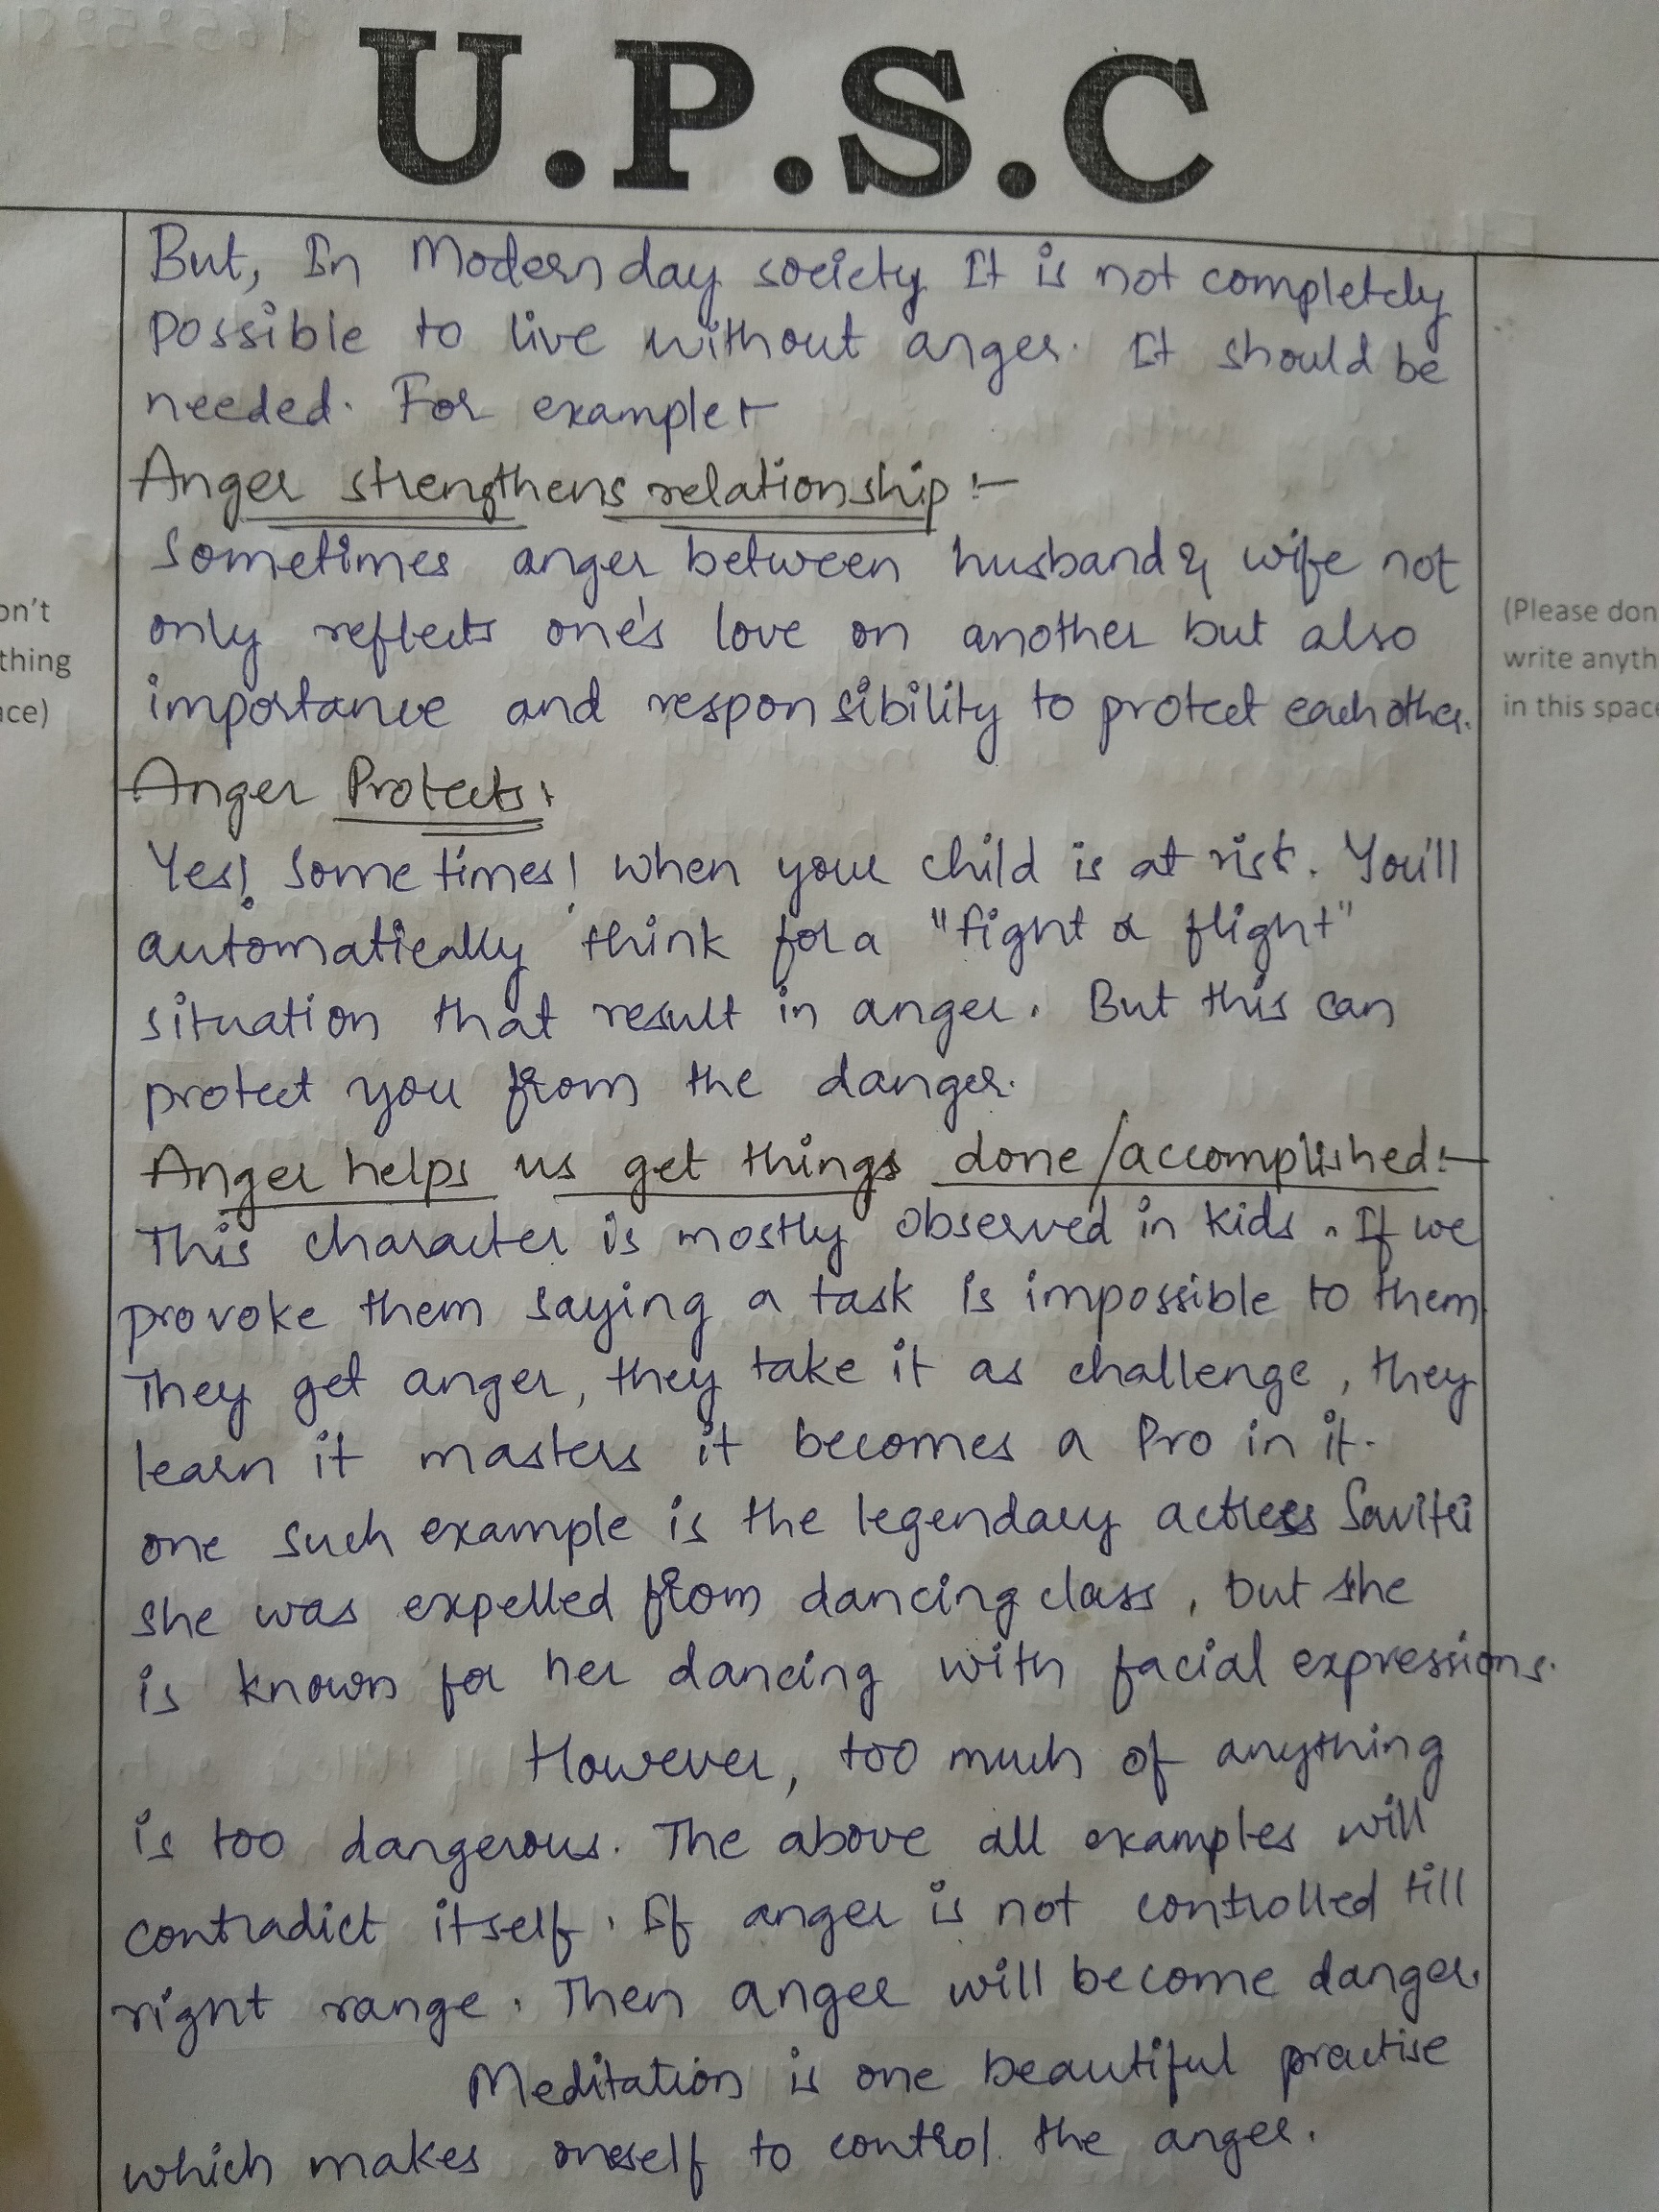 U.P.S.C
But, In Modern day society It is not completely
Possible to live without anger. It should be
needed. For example :-
Anger strengthens relationship :-
Sometimes anger between husband & wife not
only reflects one's love on another but also
importance and responsibility to protect each other.
Anger Protects :
Yes! Some times! when your child is at risk. You'll
automatically think for a "fight or flight"
situation that result in anger. But this can
protect you from the danger.
Anger helps us get things done/accomplished :-
This character is mostly observed in kids. If we
provoke them saying a task is impossible to them
They get anger, they take it as challenge, they
learn it masters it becomes a Pro in it.
one such example is the legendary actress Savitri
she was expelled from dancing class, but she
is known for her dancing with facial expressions.
However, too much of anything
is too dangerous. The above all examples will
contradict itself. If anger is not controlled till
right range. Then anger will become danger.
Meditation is one beautiful practise
which makes oneself to control the anger.
on't
thing
ace)
(Please don
write anyth
in this space